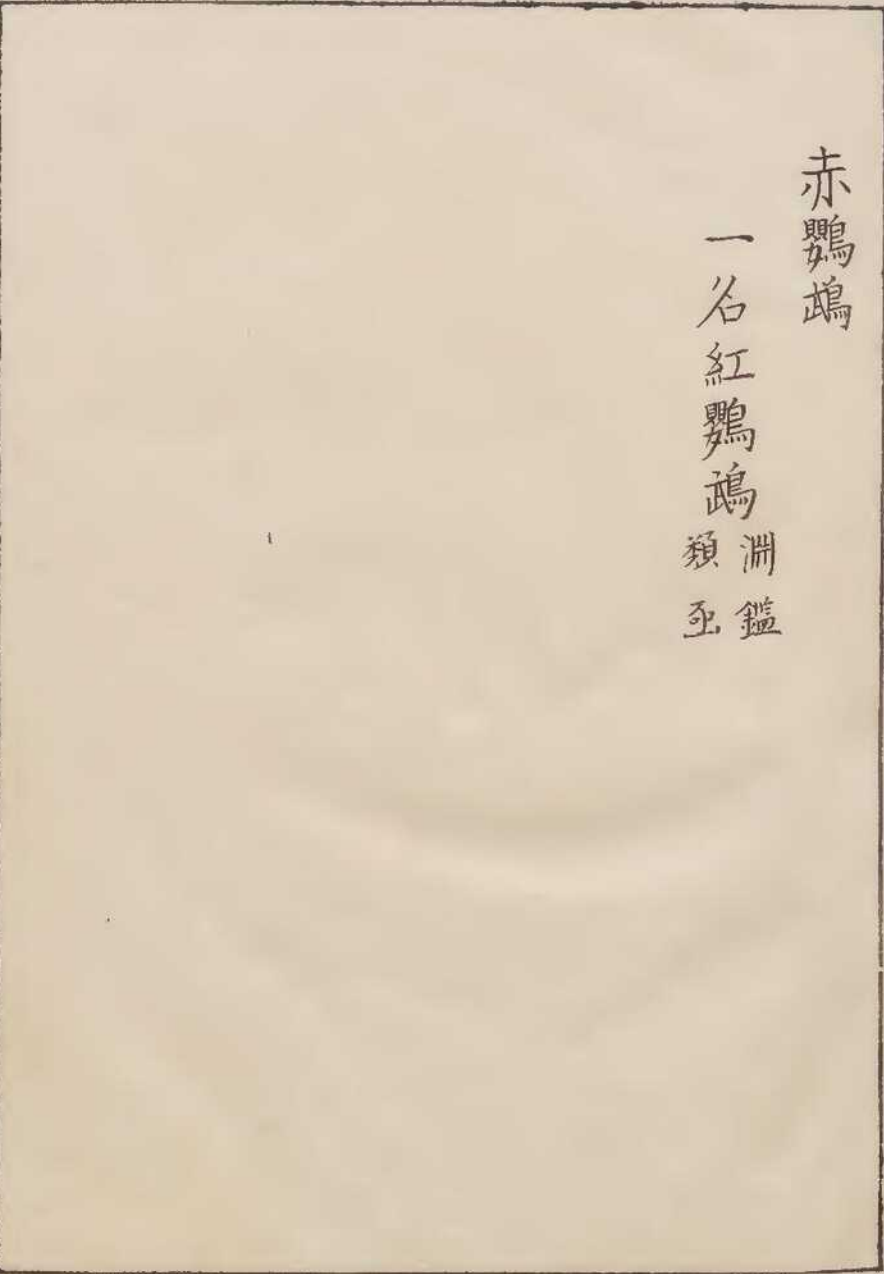 赤鸚鵡
一名紅鸚鵡
淵鑑
類凾